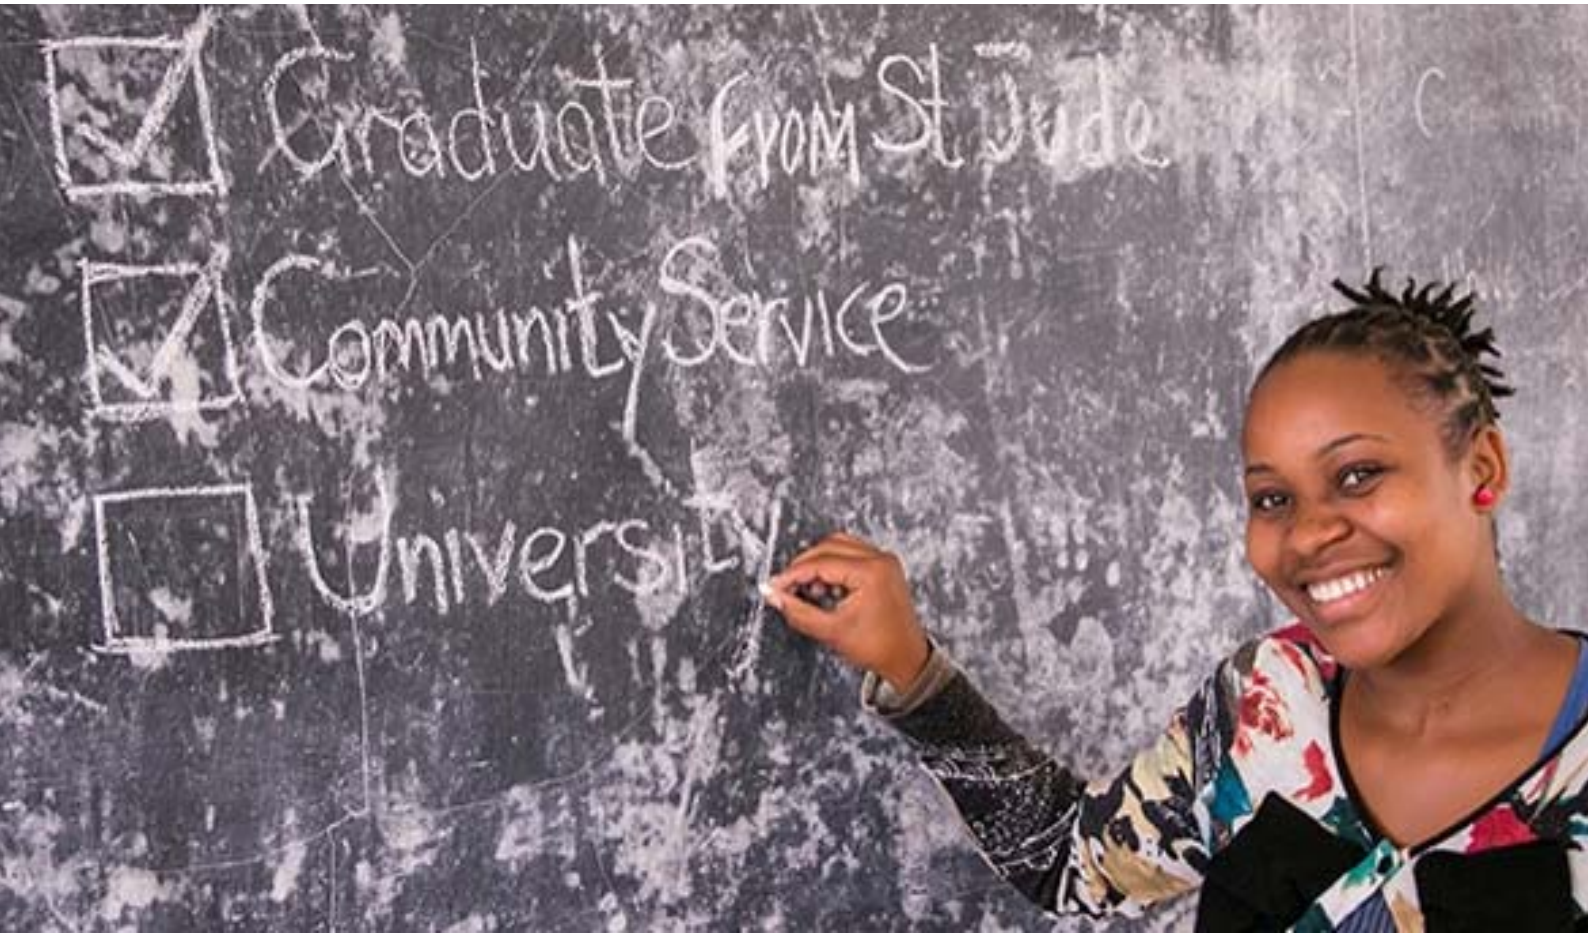 Graduate From St Jude
Community Service
University